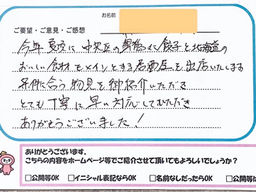 お名前
ご要望・ご意見・ご感想
今年夏に中央区の 餃子と北海道の
おいしい食材をメインとする居酒屋を出店いたします
条件に合う物見を御紹介いただき
とても丁寧に早い対応して頂き
ありがとうございました！
ありがとうございます。
こちらの内容をホームページ等でご紹介させて頂いてもよろしいでしょうか？
□公開等OK □イニシャル表記ならOK □名前なしだったらOK □公開等